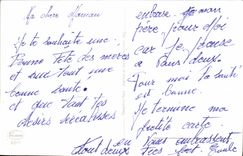 Ma chère Maman
Je te souhaite une
Bonne Fête des mères
et surtout une
bonne santé.
et que tout tes
désirs réalisés
embrasse Maman
frère pour moi
car Je pense
à vous deux.
Pour moi la santé
est bonne.
Je termine ma
petite carte.
en vous embrassant
tous deux